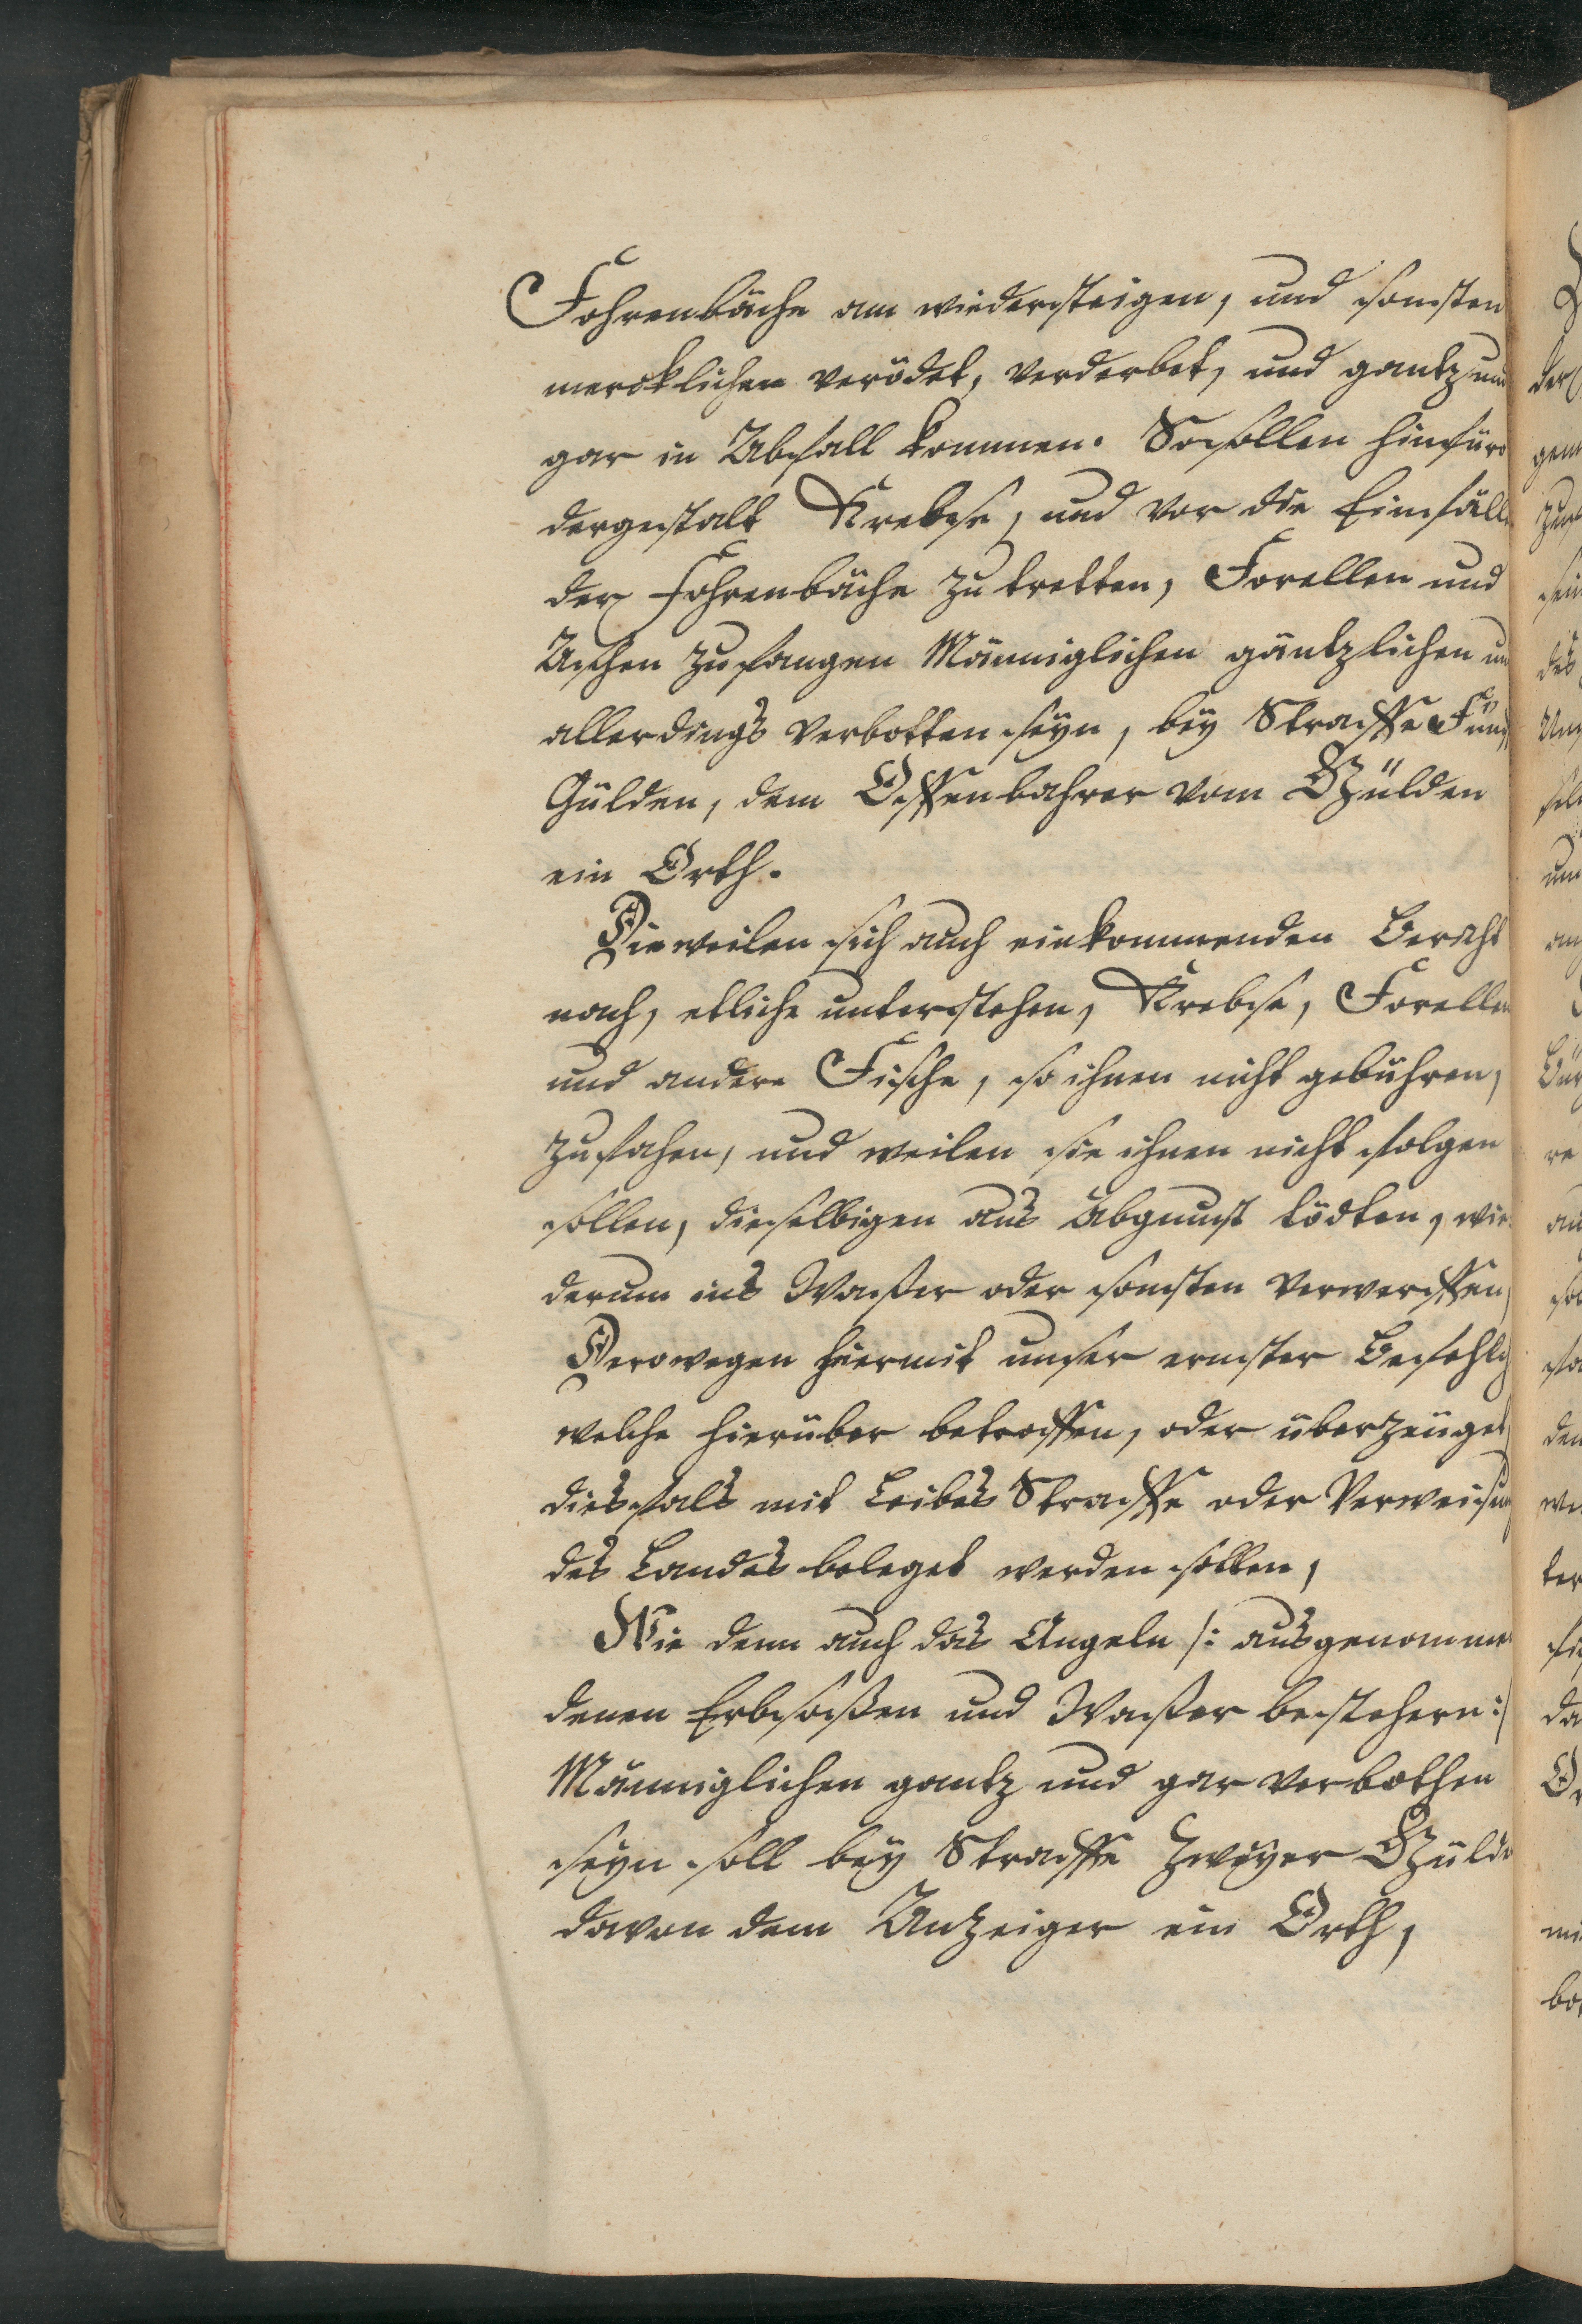 Fohrenbäche am wiedersteigen, und sonsten
mercklichen verödet, verderbet, und gantz und
gar in Abfall kommen. So sollen hinfüro
dergestalt Krebse, und vor die Einfälle
der Fohrenbäche zu tretten, Forellen und
Aschen zu fangen Männiglichen gäntzlichen und
allerdings verbotten seyn, bey Straffe Fünff
Gülden, dem Offenbahrer vom Gülden
ein Orth.
Dieweilen sich auch einkommenden Bericht
nach, etliche unterstehen, Krebse, Forellen
und andere Fische, so ihnen nicht gebühren,
zu fahen, und weilen sie ihnen nicht folgen
sollen, dieselbigen aus Abgunst tödten, wie-
derum ins Waßer oder sonsten verwerffen,
Derowegen hiermit unser ernster Befehlch
welche hierüber betroffen, oder überzeüget
diesfals mit Leibes Straffe oder Verweisung
des Landes beleget werden sollen,
Wie denn auch das Angeln /: ausgenommen
denen Erbsaßen und Waßer bestehern :/
Männiglichen gantz und gar verbothen
seyn soll bey Straffe Zweyer Gülden
davon dem Anzeiger ein Orth,